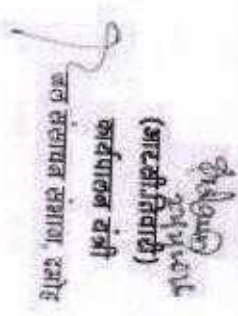 (आर.सी.तिवारी)
कार्यपालन यंत्री
जल संसाधन संभाग, दमोह